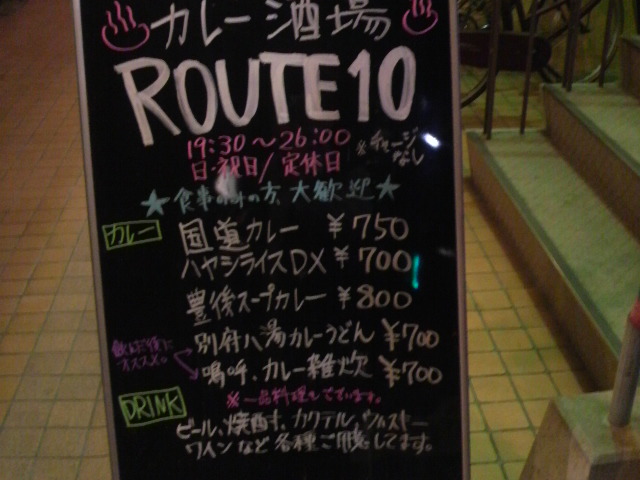 カレー酒場
ROUTE10
19:30～26:00
※チャージなし
日・祝日/定休日
★食事のみの方、大歓迎★
カレー
国道カレー ¥750
ハヤシライスDX ¥700
豊後スープカレー ¥800
別府八湯カレーうどん ¥700
飲んだ後にオススメ。
嗚呼、カレー雑炊 ¥700
※一品料理もでています。
DRINK
ビール、焼酎、カクテル、ウィスキー
ワインなど各種ご用意してます。